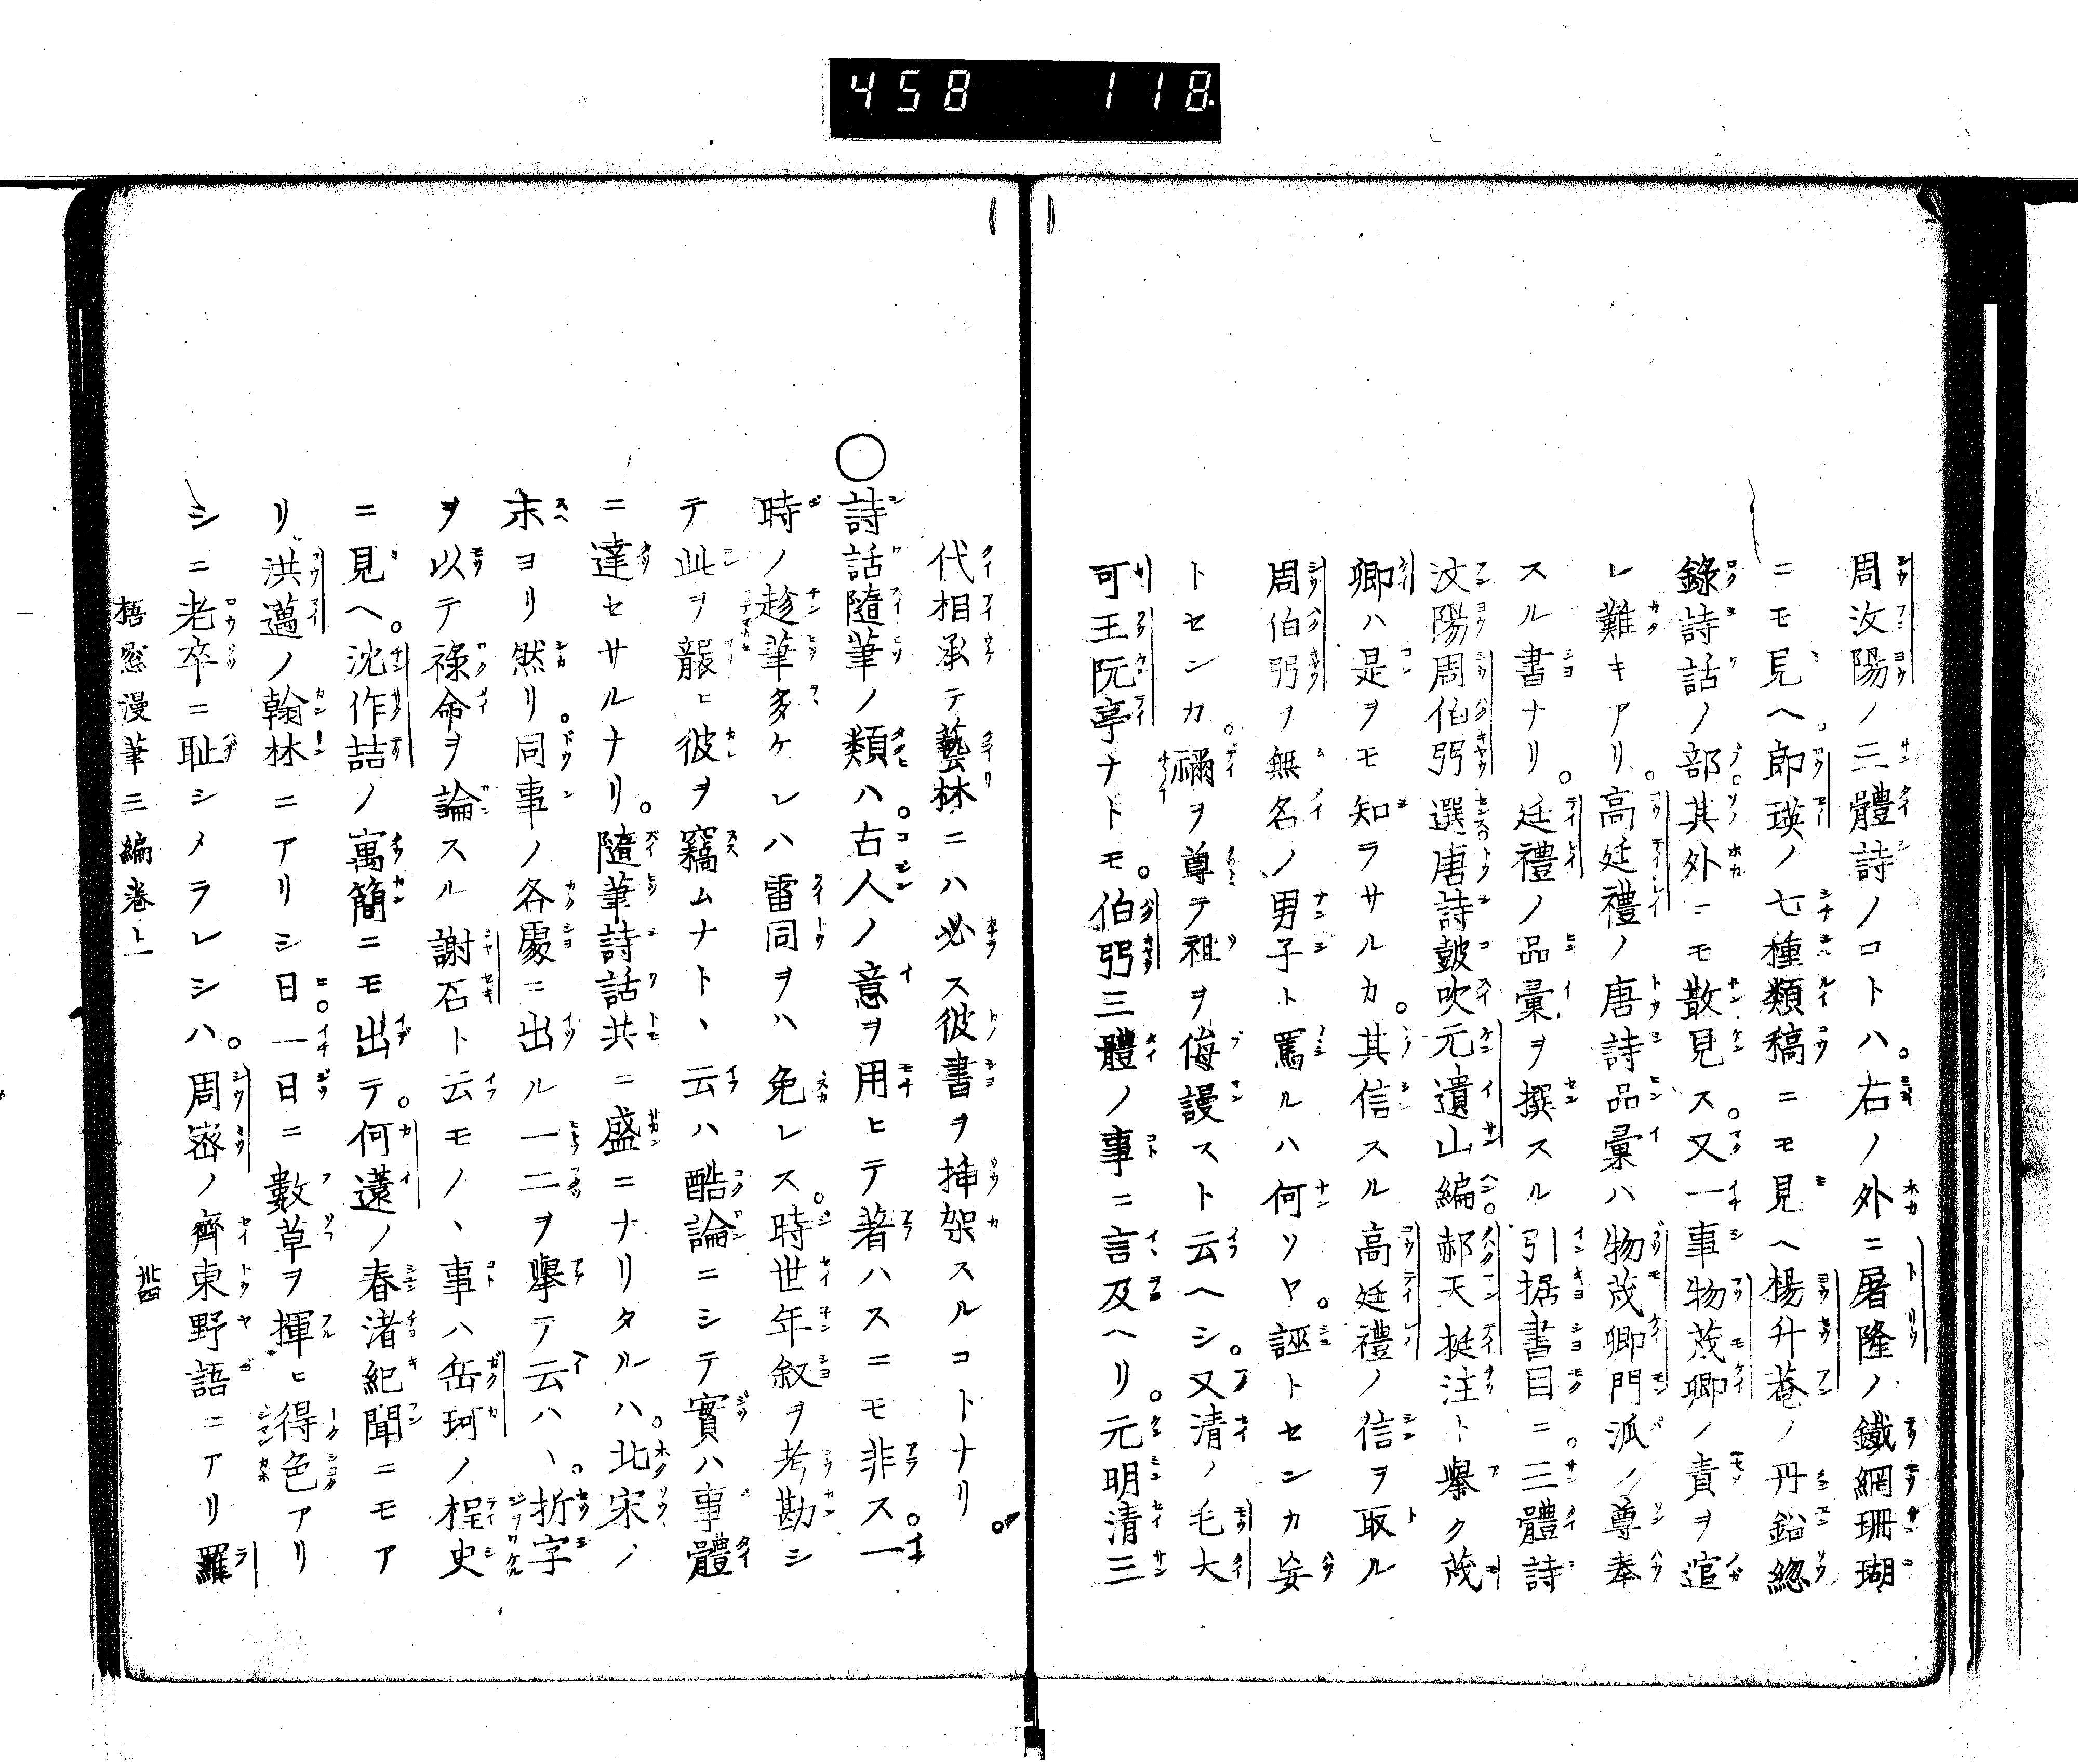 458 118
周汶陽ノ三體詩ノコトハ。右ノ外ニ屠隆ノ鐵網珊瑚
ニモ見ヘ。郎瑛ノ七種類稿ニモ見ヘ楊升菴ノ丹鉛総
錄詩話ノ部其外ニモ散見ス。又一事物茂卿ノ責ヲ逭
レ難キアリ。高廷禮ノ唐詩品彙ハ物茂卿門派ノ尊奉
スル書ナリ。廷禮ノ品彙ヲ撰スル引据書目ニ。三體詩
汶陽周伯弜選唐詩皷吹元遺山編。郝天挺注ト擧ク茂
卿ハ是ヲモ知ラサルカ。其信スル高廷禮ノ信ヲ取ル
周伯弜ヲ無名ノ男子ト罵ルハ何ソヤ。誣トセンカ妄
トセンカ。禰ヲ尊テ祖ヲ侮謾スト云ヘシ。又清ノ毛大
可王阮亭ナトモ。伯弜三體ノ事ニ言及ヘリ。元明清三
代相承テ藝林ニハ必ス彼書ヲ挿架スルコトナリ。
○詩話隨筆ノ類ハ。古人ノ意ヲ用ヒテ著ハスニモ非ス。一
時ノ趁筆多ケレハ雷同ヲハ免レス。時世年叙ヲ考勘シ
テ此ヲ襲ヒ彼ヲ竊ムナトヽ云ハ酷論ニシテ實ハ事體
ニ達セサルナリ。隨筆詩話共ニ盛ニナリタルハ。北宋ノ
末ヨリ然リ。同事ノ各處ニ出ル一二ヲ擧テ云ハヽ。折字
ヲ以テ祿命ヲ論スル謝石ト云モノヽ事ハ岳珂ノ桯史
ニ見ヘ。沈作喆ノ寓簡ニモ出テ。何薳ノ春渚紀聞ニモア
リ。洪邁ノ翰林ニアリシ日一日ニ數草ヲ揮ヒ得色アリ
シニ老卒ニ耻シメラレシハ。周密ノ齊東野語ニアリ羅
梧窓漫筆三編卷上